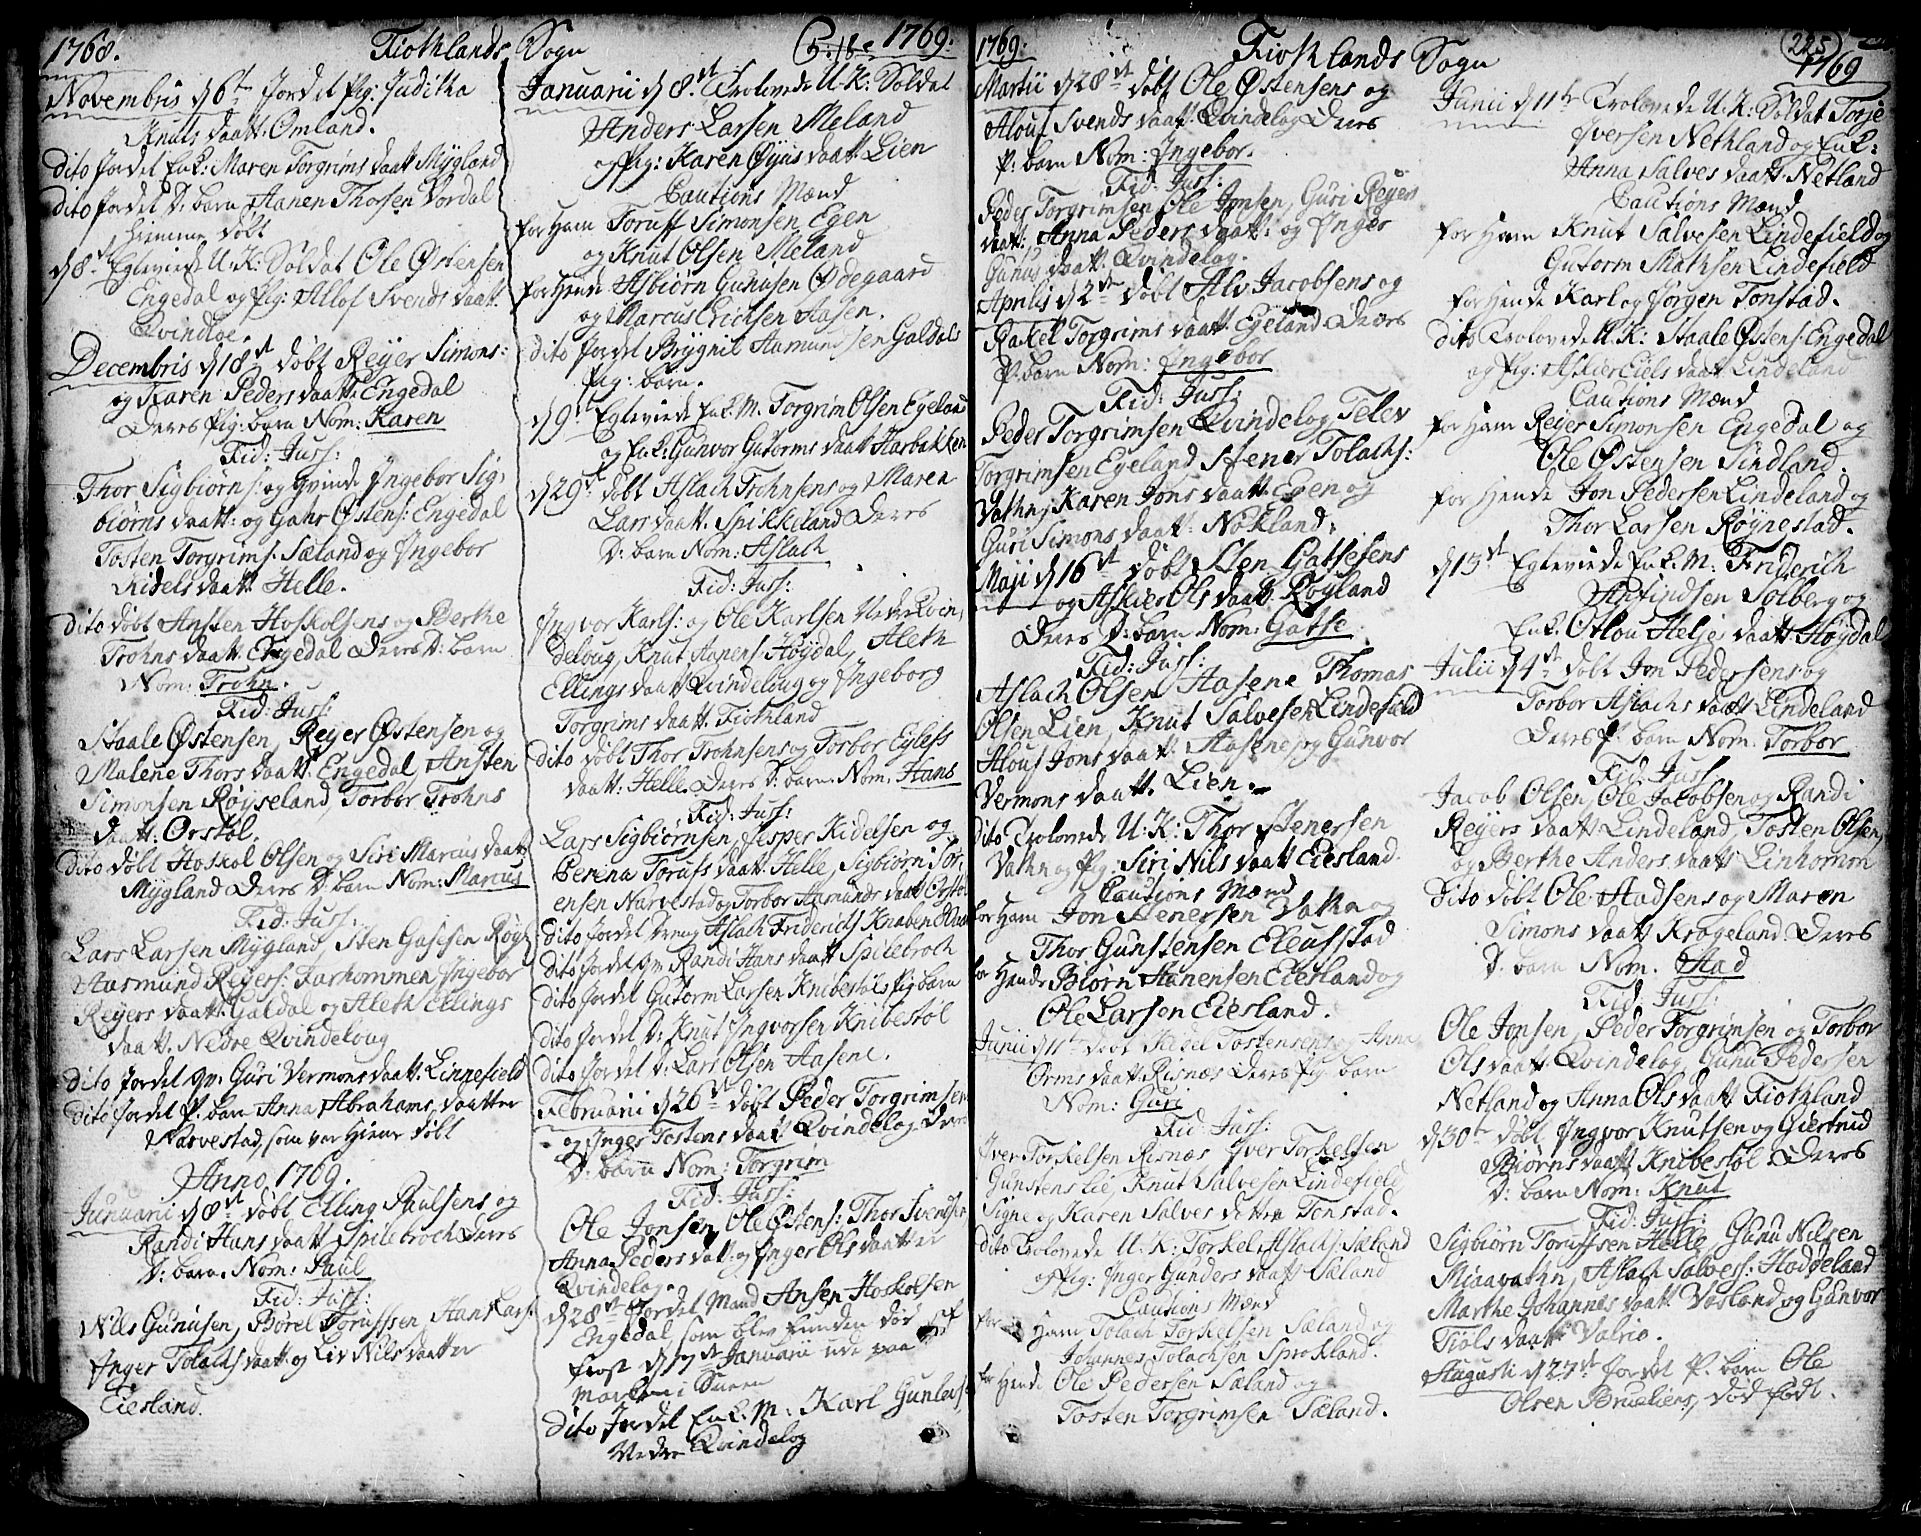 1768. Fiothlands Sogn
Novembris d 6te Jordet Pig: Juditha
Knuts daatt. Omland.
dito Jordet Enk: Maren Torgrims daatt Mygland
dito Jordet D: barn Aanen Thorsen Vordal
hiemme døbt
d 8de Egteviede U: K: Soldat Ole Østensen
Engedal og Pig: Allof Svends daatt.
Qvindloe.
Decembris d 18de døbt Reyer Simons:
og Karen Peders daatt. Engedal
Deres Pig: barn Nom: Karen
Fid: Juss:
Thor Sigbiørns: og Qvinde Ingebor Sig,
biørns daatt: og Gahr Østens: Engedal
Tosten Torgrims: Sæland og Ingebor
Kidels daatt. Helle.
dito døbt Ansten Hoskolsens og Berthe
Trohns daatt. Engedal Deres D: barn
Nom: Trohn.
Fid: Juss:
Staale Østensen, Reyer Østensen og
Malene Thors daatt. Engedal, Ansten
Simonsen Røyseland, Torbor Trohns
daatt. Ørstøl.
dito døbt Hoskol Olsen og Siri Marcus daatt
Mygland Deres D: barn Nom: Marcus
Fid: Juss:
Lars Larsen Mygland, Sten Gasesen Røyl
Aasmund Reyers: Farhommen, Ingebor
Reyers daatt. Galdal og Aleth Ellings
daatt. Nedre Qvindeloug
dito Jordet Qv: Guri Vermons daatt. Linnefield
dito Jordet P. barn Anna Abrahams daatter
Narvestad, som var hieme døbt
Anno, 1769.
Januarii d 8de døbt Elling Paulsens og
Randi Hans daatt Spilebroch Deres
D: barn. Nom: Paul
Fid: Juss:
Nils Gunusen, Borel Toruffsen Hans Lars:
Inger Tolachs daatt. og Liv Nils daatter
Eiesland.

1769.
Januarii d 8de Trolovede U: K: Soldat
Anders Larsen Meland
og Pig: Karen Øyus daatt. Lien
Cautions Mænd
for Ham Toruff Simonsen Egen
og Knut Olsen Meland
for Hende Asbiørn Gunusen Ødegaard
og Marcus Erichsen Aasen.
dito Jordet Brygnil Aamundsen Galdals
Pig: barn.
d 9de Egteviede Enk. M. Torgrim Olsen Egeland
og Enk: Gunvor Gutorms daatt Harbakken
d 29de døbt Aslach Trohnsens og Maren
Lars daatt. Spikkeland Deres
D: barn Nom: Aslach
Fid: Juss:
Ingvor Karls: og Ole Karlsen Neder Qvin,
deloug, Knut Aanens: Høydal, Aleth
Ellings daatt. Qvindeloug og Ingeborg
Torgrims daatt. Fiothland
dito døbt Thor Trohnsens og Torbor Eylefs
daatt: Helle. Deres D: barn. Nom: Hans
Fid: Juss:
Lars Sigbiørnsen, Jesper Kidelsen og
Berina Torufs daatt. Helle, Sigbiørn Tor,
ensen Narvestad og Torbor Aamunds daatt Ørstøl
dito Jordet Aslach Friderichs Knaben
dito Jordet Qv. Randi Hans daatt. Spilebroch
dito Jordet Gutorm Larsen Knibestøls Pig barn
dito Jordet D: Knut Ingvorsen Knibestøl
dito Jordet D: Lars Olsen Aasene.
Februarii d 26de døbt Peder Torgrimsen
og Inger Tostens daatt. Qvindelog Deres
D: barn Nom: Torgrim
Fid: Juss:
Ole Jonsen, Ole Østens: Thor Svendsen
Anna Peders datt. og Inger Ols daatter
Qvindelog.
d 28de Jordet Mand Ansen Hoskolsen
Engedal, som blev funden død af
frost d 17de Januarii ude paa
Marken i Sneen
dito Jordet Enk. M: Karl Gunlefs:
Nedre Qvindelog

1769. Fiothlands Sogn
Martii d 28de døbt Ole Østensens og
Alouf Svends daatt. Qvindelog Deres
P: barn Nom: Ingebor.
Fid: Juss:
Peder Torgrimsen Ole Jonsen, Guri Reyers
daatt, Anna Peders daatt: og Inger
Gunus daatt. Qvindelog.
Aprilis d 2de døbt Alv Jacobsens og
Rakel Torgrims daatt. Egeland Deres
P. barn Nom: Ingebor
Fid: Juss:
Peder Torgrimsen Qvindelog, Tellev
Torgrimsen Egeland, Stener Tolachs:
Vathn, Karen Jons daatt. Egen og
Guri Simons daatt. Nokland.
Maji d 16de døbt Sten Gatsesens
og Askier Ols daatt. Røyland
Deres D: barn Nom: Gatse.
Fid: Juss:
Aslach Olsen Aasene Thomas
Olsen Lien, Knut Salvesen Lindefield
Alouf Jons daatt. Aasene, og Gunvor
Vermons daatt. Lien.
dito Trolovede U: K: Thor Stenersen
Vathn og Pig: Siri Nils daatt Eiesland.
Cautions Mænd
for Ham Jon Stenersen Vathn og
Thor Gunstensen Eleufstad
for Hende Biørn Aanensen Eiesland og
Ole Larsen Eiesland.
Junii d 11te døbt Kidel Tostensens og Anna
Orms daatt. Risnæs Deres Pig. barn
Nom: Guri
Fid: Juss:
Iver Torkelsen Risnæs Iver Torkelsen
Gunstenslie, Knut Salvesen Lindefield
Signe og Karen Salves dettre Tonstad.
dito Trolovede U. K: Torkel Aslachs: Sæland
og Pig: Inger Gunders daatt Sæland
Cautions Mænd
for Ham Tolach Torkelsen Sæland og
Johannes Tolachsen Sprokland.
for Hende Ole Pedersen Sæland og
Tosten Torgrimsen Sæland.

225
1769
Junii d 11te Trolovede U. K: Soldat Torje
Iversen Nethland og Enk:
Anna Salves daatt. Netland
Cautions Mænd
for Ham Knut Salvesen Lindefield og
Gutorm Mathsen Lindefield
for Hende Karl og Jørgen Tonstad.
dito Trolovede U. K: Staale Østens: Engedal
og Pig: Askier Eiels daatt Lindeland
Cautions Mænd
for Ham Reyer Simonsen Engedal og
Ole Østensen Sindland.
for Hende Jon Pedersen Lindeland og
Thor Larsen Røynestad.
d 13de Egteviede Enk. M: Friderich
Solberg og
Enk. Otlou Helje daatt Høydal
Julii d 4de døbt Jon Pedersens og
Torbor Aslachs daatt Lindeland
Deres P. barn Nom. Torbor
Fid: Juss:
Jacob Olsen, Ole Jacobsen og Randi
Reyers daatt Lindeland, Tosten Olsen,
og Berthe Anders daatt Linhomon
dito døbt Ole Aadsens og Maren
Simons daatt. Krogeland. Deres
D. barn Nom. Aad
Fid: Juss:
Ole Jonsen, Peder Torgrimsen og Torbor
Ols daatt. Qvindelog, Gunu Pedersen
Netland og Anna Ols daatt Fiothland
d 30te døbt Ingvor Knutsen og Giertrud
Biørns daatt. Knibestøl Deres
D: barn Nom: Knut
Fid: Juss:
Sigbiørn Toruffsen Helle, Gunu Nilsen
Miaavathn, Aslach Salves: Hoddeland
Marthe Johannes daatt. Vosland og Gunvor
Tiøls daatt. Valrio.
Augusti d 27de Jordet P. barn Ole
Olsen Brueliens, død født.